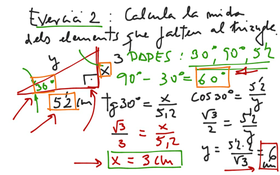 Exercici 2: Calcula la mida
dels elements que falten al triangle.
y
3
DADES: 30°, 90°, 5'2
x
30°
5'2 cm
90° - 30° = 60°
tg 30° = x/5,2
√3/3 = x/5,2
x = 3 cm
cos 30° = 5'2/y
√3/2 = 5'2/y
y = 5'2·2/√3 = 6 cm